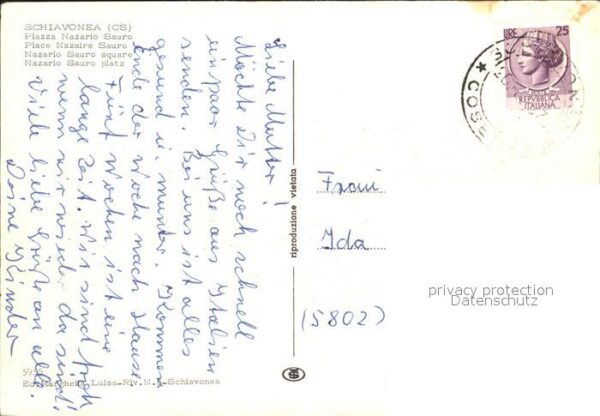 SCHIAVONEA (CS)
Piazza Nazario Sauro
Place Nazaire Sauro
Nazario Sauro square
Nazario Sauro platz
Liebe Mutter!
Möchte Dir noch schnell
ein paar Grüße aus Italien
senden. Bei uns ist alles
gesund u. munter. Kommen
Ende der Woche nach Hause
Fünf Wochen ist eine
lange Zeit. Wir sind froh
wenn wir wieder da sind!
Viele liebe Grüße an alle.
Deine Kinder
Ed. Margherita Luisa-Riv. N. -Schiavonea
riproduzione vietata
LIRE 25
POSTE
REPVBBLICA
ITALIANA
COS
Frau
Ida
(5802)
privacy protection
Datenschutz